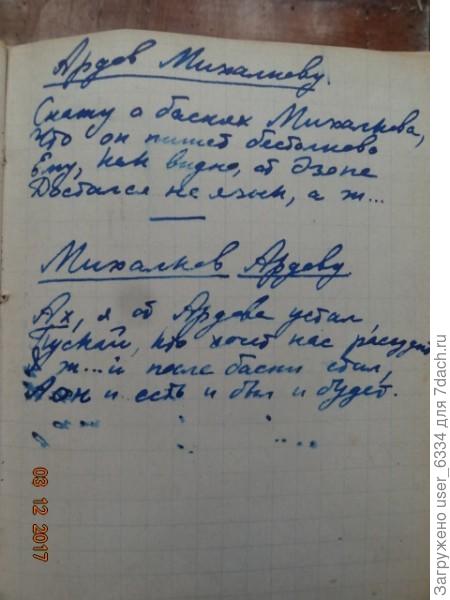 Ардов Михалкову.
Скажу о баснях Михалкова,
Что он пишет бестолково
Ему, как видно, от Эзопа
Достался не язык, а ж...
Михалков Ардову
Ах, я от Ардова устал,
Пускай, кто хочет нас рассудит
Я ж...й после басни стал,
А он и есть и был и будет.
03 12 2017
Загружено user_6334 для 7dach.ru